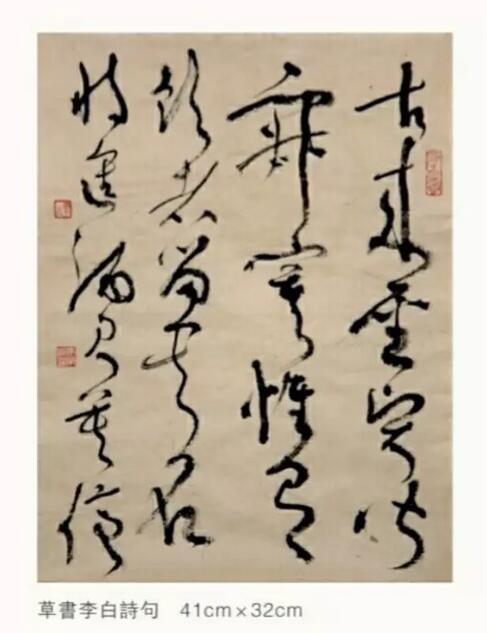 古來聖賢皆
寂寞惟有
飲者留其名
將進酒句
草書李白詩句 41cm×32cm